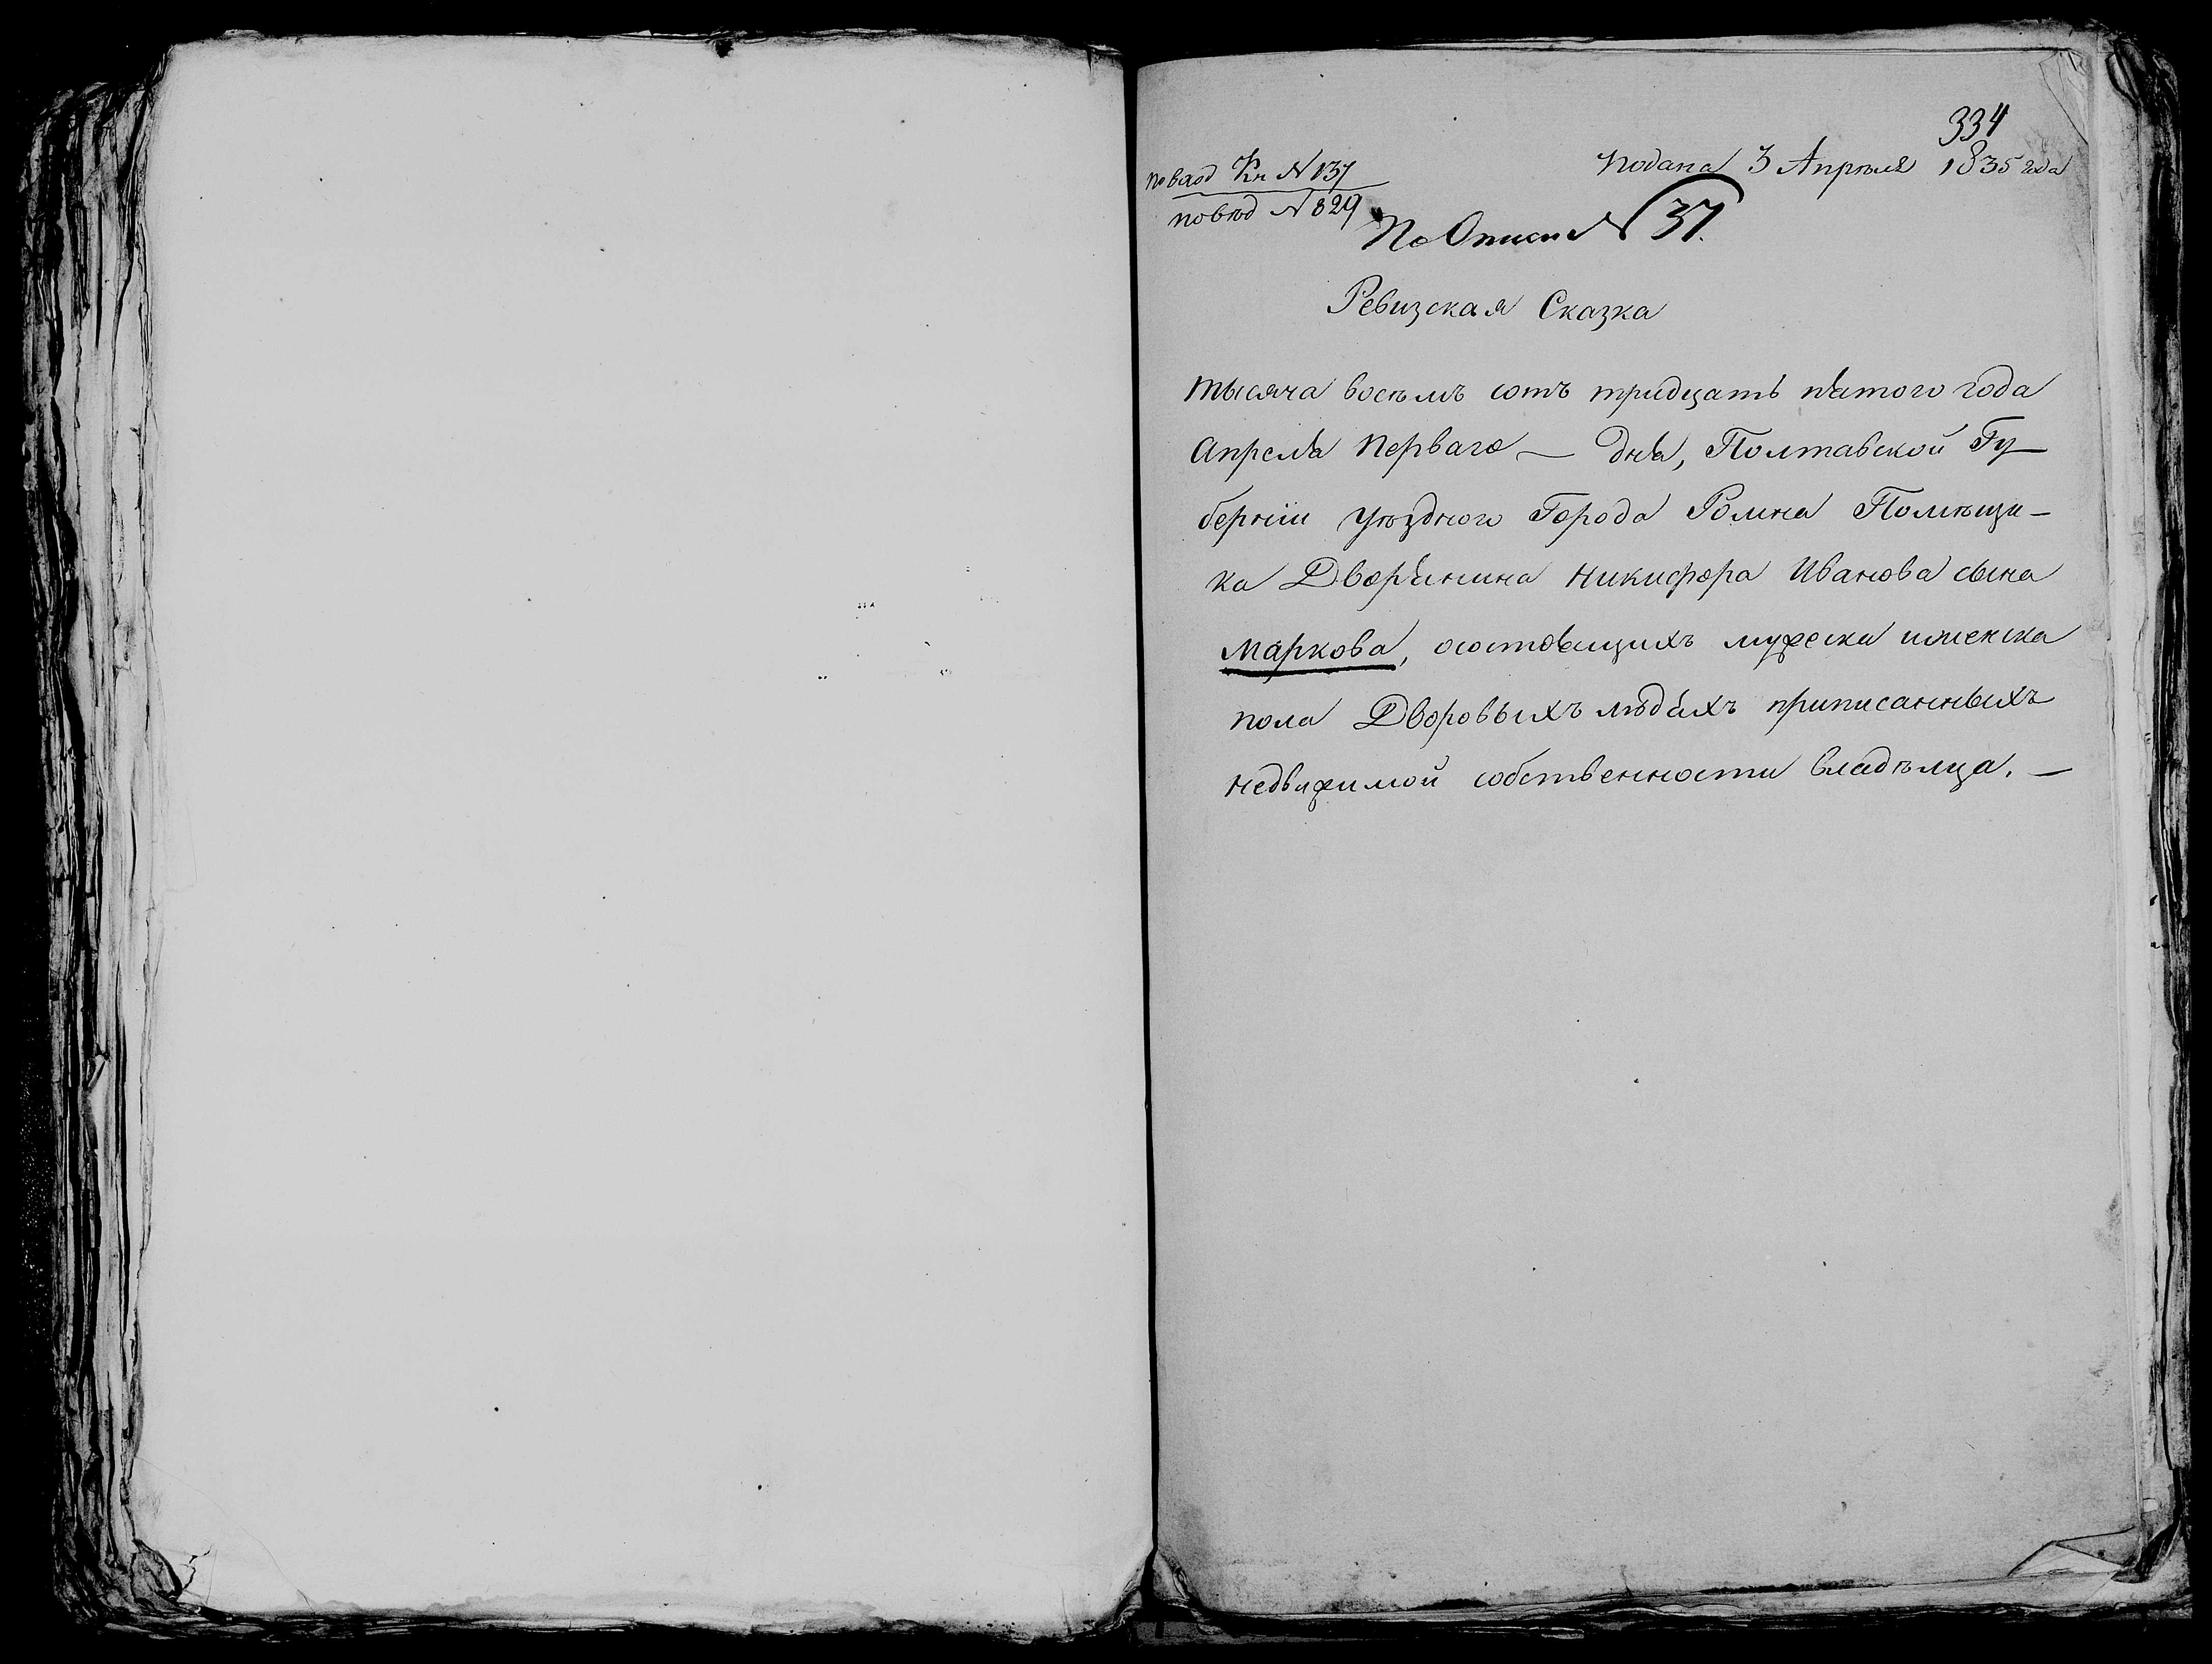 334
Подана 3 Апрѣля 1835 года
по вход Кн N 137
N 829
По Описи N 37.
Ревизская Сказка
тысяча восѣмъ сотъ тридцать пятого года
Апреля перваго — дня, Полтавской Гу-
берніи уѣздного Города Ромна Помѣщи-
ка Дворянина Никифора Иванова сына
Маркова, осостоящихъ мужеска иженска
пола Дворовыхъ людяхъ приписанныхъ
недвижимой собственности владѣлца. —